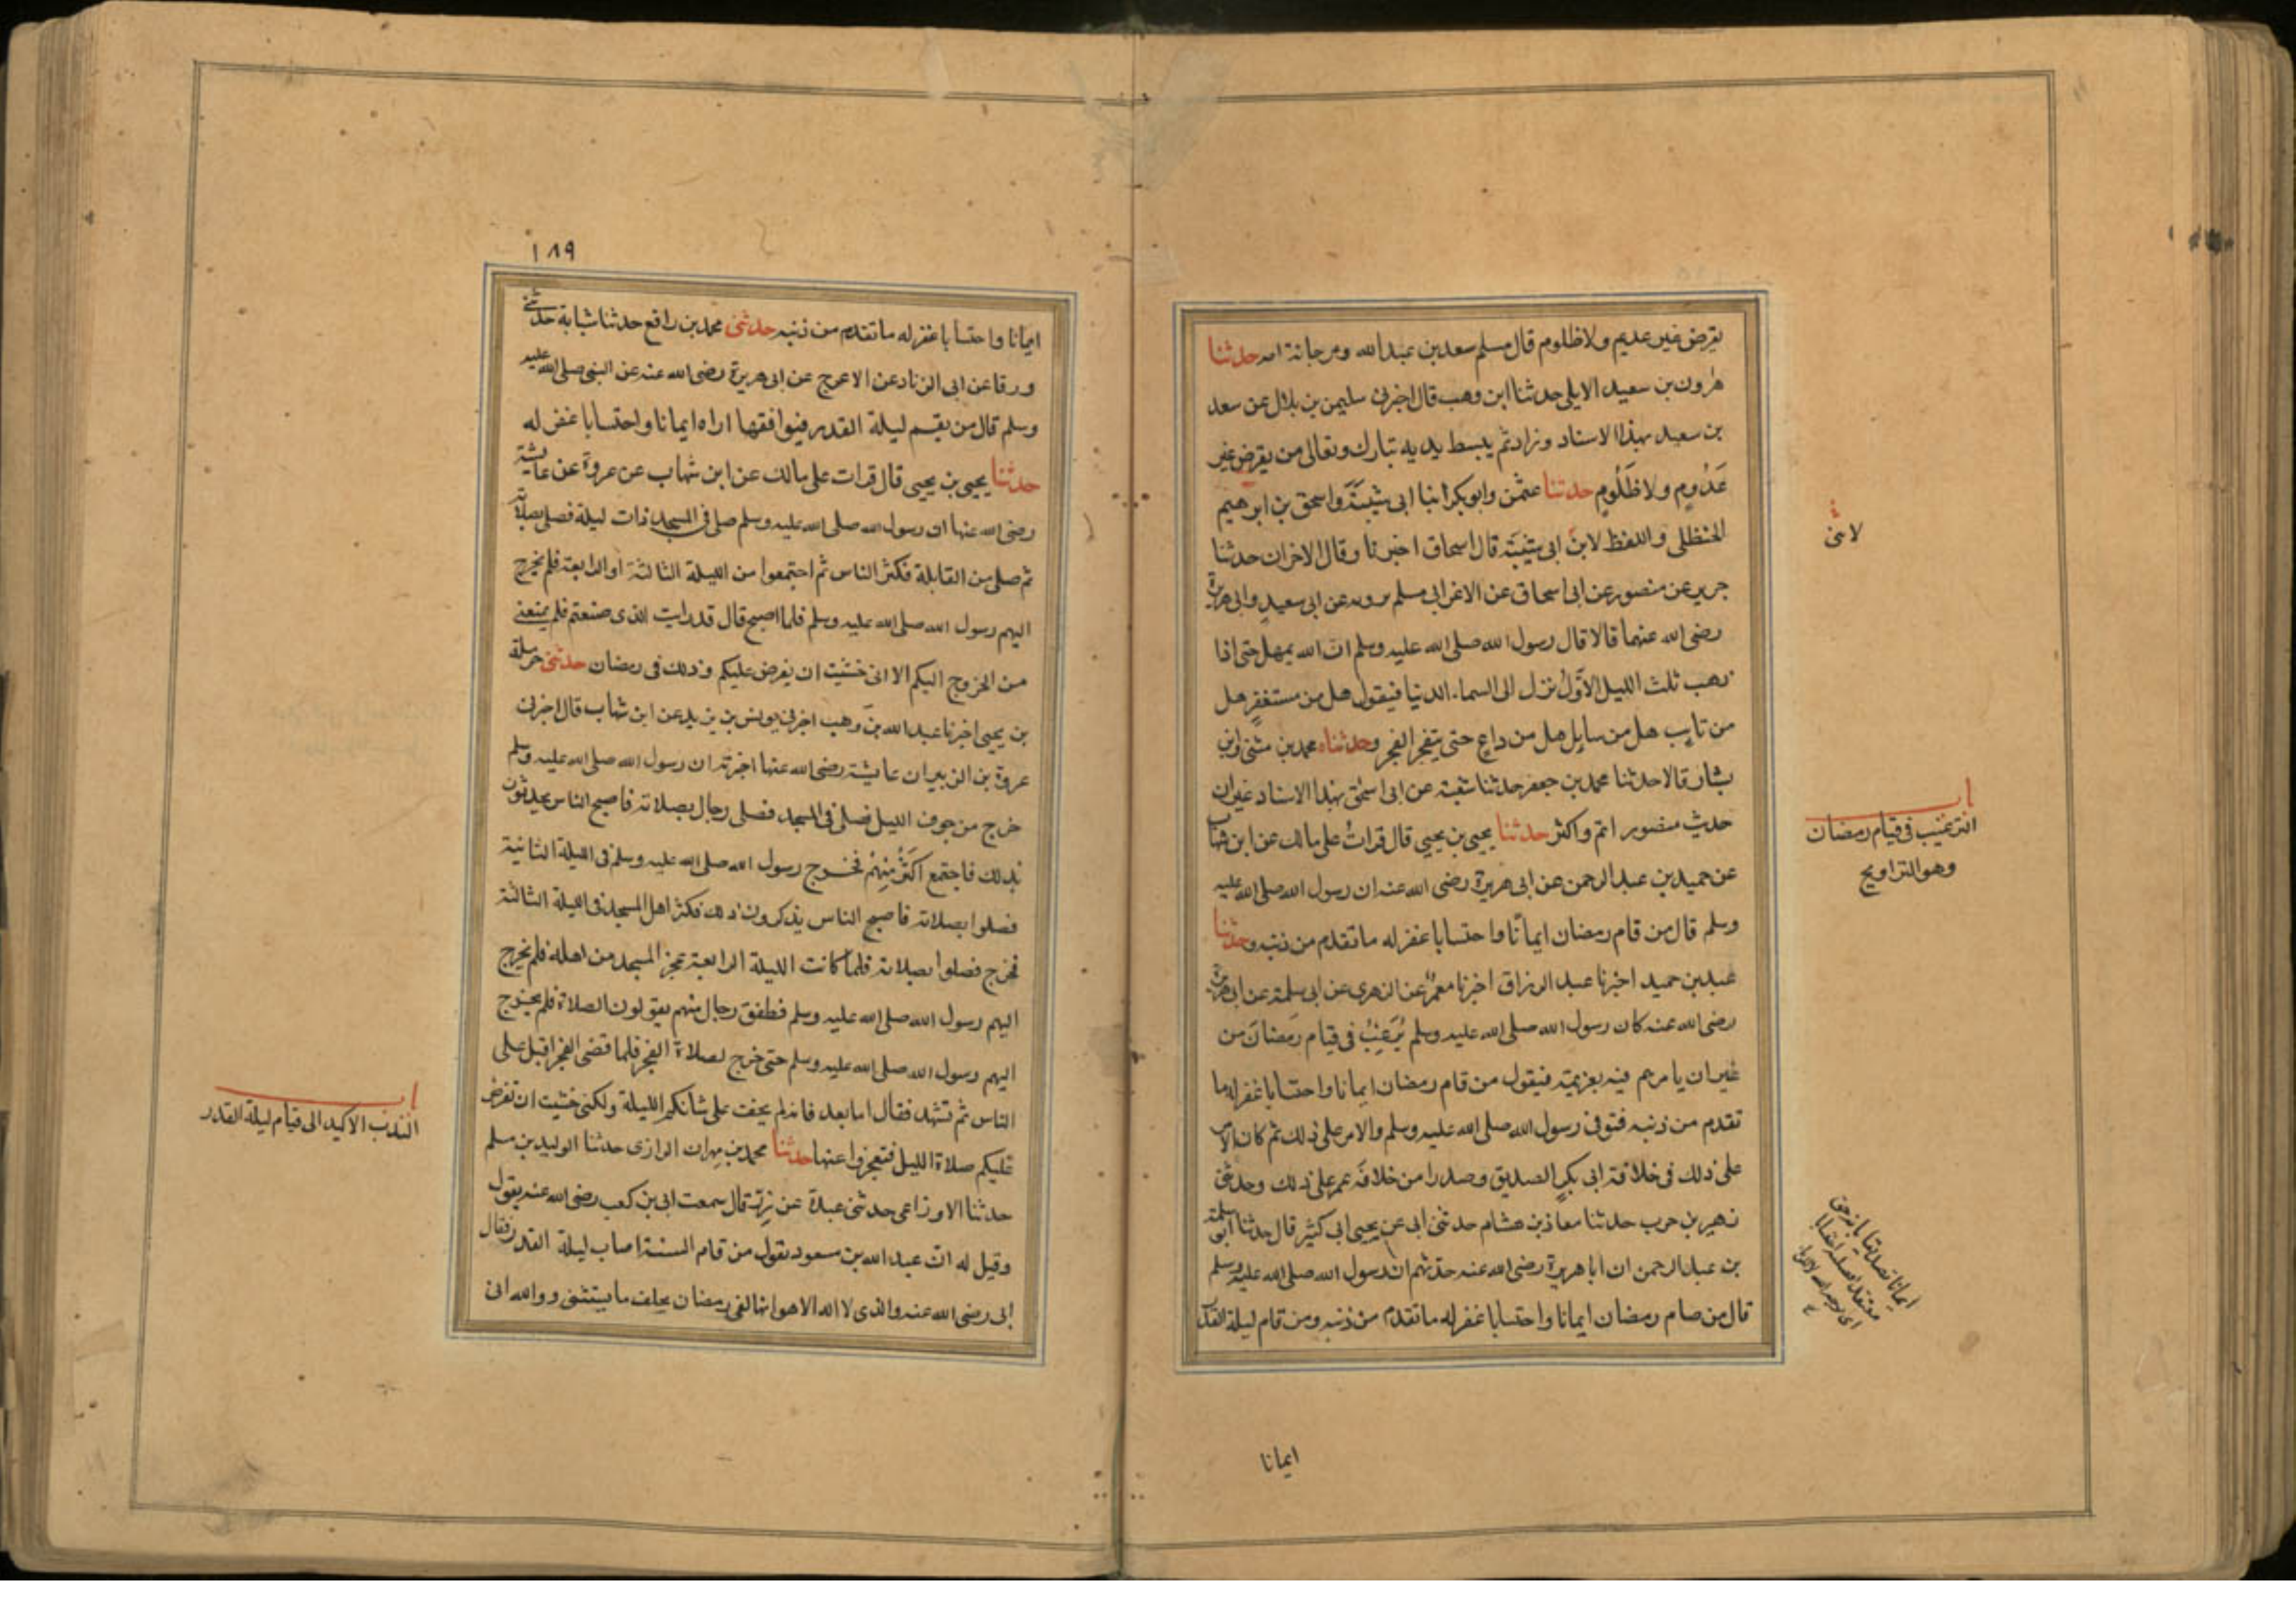 يقرض غير عديم ولا ظلوم قال مسلم سعد بن عبدالله ومرجانة امه حدثنا
هرون بن سعيد الايلى حدثنا ابن وهب قال اخبرنى سليمن بن بلال عن سعد
بن سعيد بهذا الاسناد وزاد ثم يبسط يديه تبارك وتعالى من يقرض غير
عَدُومٍ ولا ظَلُومٍ حدثنا عثمن وابو بكر ابنا ابى شيبَةَ واسحق بن ابرهيم
الحنظلى واللفظ لابن ابى شيبَة قال اسحاق اخبرنا وقال الاخران حدثنا
جرير عن منصور عن ابى اسحاق عن الاغر ابى مسلم يرويه عن ابى سعيدٍ وابى هريرة
رضى الله عنهما قالا قال رسول الله صلى الله عليه وسلم ان الله يمهل حتى اذا
ذهب ثلث الليل الاَوَّلُ نزل الى السماء الدنيا فيقول هل من مستغفرٍ هل
من تايب هل من سايل هل من داعٍ حتى ينفجر الفجر وحدثناه محمد بن مثنى وابن
بشار قالا حدثنا محمد بن جعفر حدثنا شعبة عن ابى اسحق بهذا الاسناد غير ان
حديث منصور اتم واكثر حدثنا يحيى بن يحيى قال قراتُ على مالك عن ابن شهاب
عن حميد بن عبد الرحمن عن ابى هريرة رضى الله عنه ان رسول الله صلى الله عليه
وسلم قال من قام رمضان ايمانًا واحتسابا غفر له ما تقدم من ذنبه وحدثنا
عبد بن حميد اخبرنا عبد الرزاق اخبرنا معمرٌ عن الزهرى عن ابى سلمة عن ابى هريرة
رضى الله عنه كان رسول الله صلى الله عليه وسلم يُرَغِبُ فى قيام رَمضانَ من
غير ان يامرهم فيه بعزيمة فيقول من قام رمضان ايمانا واحتسابا غفر له ما
تقدم من ذنبه فتوفى رسول الله صلى الله عليه وسلم والامر على ذلك ثم كان الامر
على ذلك فى خلافة ابى بكرٍ الصديق وصدرا من خلافة عمر على ذلك وحدثنى
زهير بن حرب حدثنا معاذ بن هشام حدثنى ابى عن يحيى ابى كثير قال حدثنا ابو سلمة
بن عبد الرحمن ان ابا هريرة رضى الله عنه حدثهم ان رسول الله صلى الله عليه وسلم
قال من صام رمضان ايمانا واحتسابا غفر له ما تقدم من ذنبه ومن قام ليلة القدر
لابنى
باب
الترغيب فى قيام رمضان
وهو التراويح
ايمانا تصديقا بانه حق
ايمانا
١٨٩
ايمانا واحتسابا غفر له ما تقدم من ذنبه حدثنى محمد بن رافع حدثنا شبابة حدثنى
ورقا عن ابى الزناد عن الاعرج عن ابى هريرة رضى الله عنه عن النبى صلى الله عليه
وسلم قال من يقم ليلة القدر فيوافقها اراه ايمانا واحتسابا غفر له
حدثنا يحيى بن يحيى قال قرات على مالك عن ابن شهاب عن عروة عن عايشة
رضى الله عنها ان رسول الله صلى الله عليه وسلم صلى فى المسجد ذات ليلة فصلى بصلاته
ثم صلى من القابلة فكثر الناس ثم اجتمعوا من الليلة الثالثة او الرابعة فلم يخرج
اليهم رسول الله صلى الله عليه وسلم فلما اصبح قال قد رايت الذى صنعتم فلم يمنعنى
من الخروج اليكم الا انى خشيت ان يفرض عليكم وذلك فى رمضان حدثنى حرملة
بن يحيى اخبرنا عبد الله بن وهب اخبرنى يونس بن يزيد عن ابن شهاب قال اخبرنى
عروة بن الزبير ان عايشة رضى الله عنها اخبرته ان رسول الله صلى الله عليه وسلم
خرج من جوف الليل فصلى فى المسجد فصلى رجال بصلاته فاصبح الناس يحدثون
بذلك فاجتمع اكثَرُ مِنهُم فخرج رسول الله صلى الله عليه وسلم فى الليلة الثانية
فصلوا بصلاته فاصبح الناس يذكرون ذلك فكثر اهل المسجد فى الليلة الثالثة
فخرج فصلوا بصلاته فلما كانت الليلة الرابعة عجز المسجد من اهله فلم يخرج
اليهم رسول الله صلى الله عليه وسلم فطفق رجال منهم يقولون الصلاة فلم يخرج
اليهم رسول الله صلى الله عليه وسلم حتى خرج لصلاة الفجر فلما قضى الفجر اقبل على
الناس ثم تشهد فقال اما بعد فانه لم يخف على شانكم الليلة ولكنى خشيت ان تفرض
عليكم صلاة الليل فتعجزوا عنها حدثنا محمد بن مهران الرازى حدثنا الوليد بن مسلم
حدثنا الاوزاعى حدثنى عبدة عن زِرٍّ قال سمعت ابى بن كعب رضى الله عنه يقول
وقيل له ان عبد الله بن مسعود يقول من قام السنة اصاب ليلة القدر فقال
ابى رضى الله عنه والذى لا اله الا هو انها لفى رمضان يحلف ما يستثنى ووالله انى
باب
الندب الاكيد الى قيام ليلة القدر